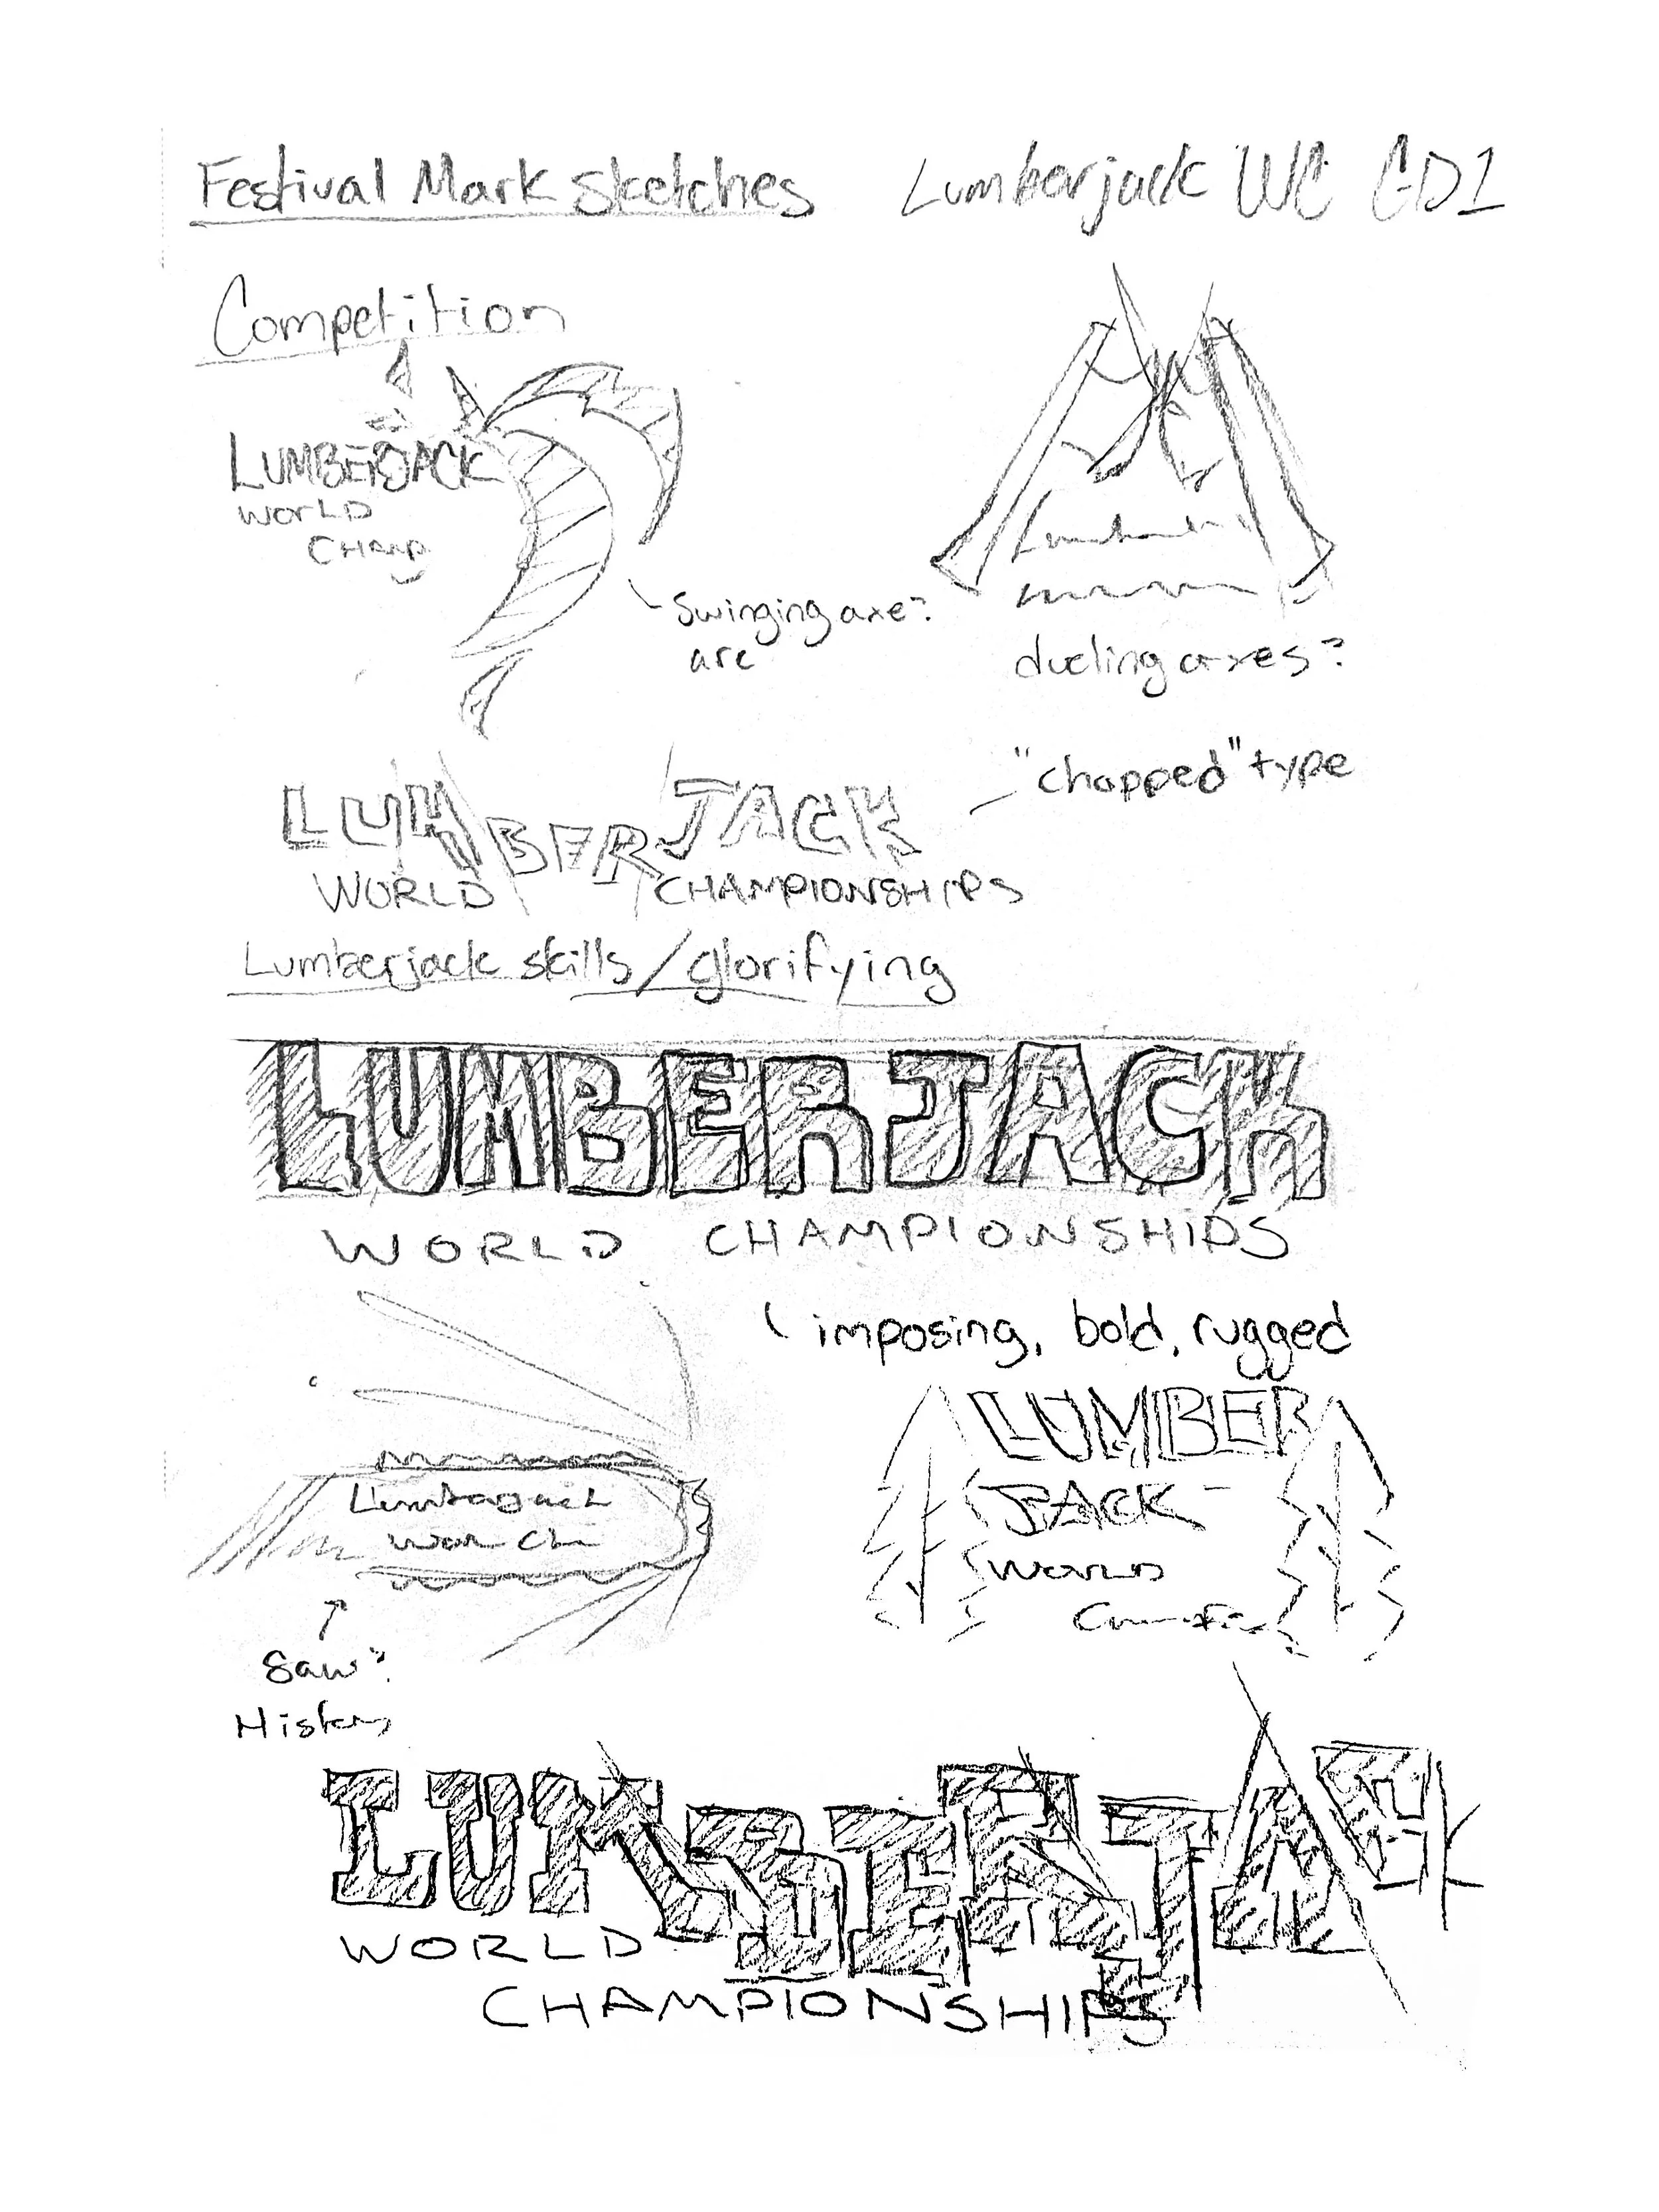 Festival Mark Sketches
Lumberjack WC GD1
Competition
LUMBERJACK
WORLD
CHAMP
Swinging axe?
arc
dueling axes?
"chopped" type
LUMBERJACK
WORLD CHAMPIONSHIPS
Lumberjack skills/glorifying
LUMBERJACK
WORLD CHAMPIONSHIPS
imposing, bold, rugged
Lumberjack
Wor Ch
LUMBER
JACK
WORLD
Saw?
History
LUMBERJACK
WORLD
CHAMPIONSHIPS